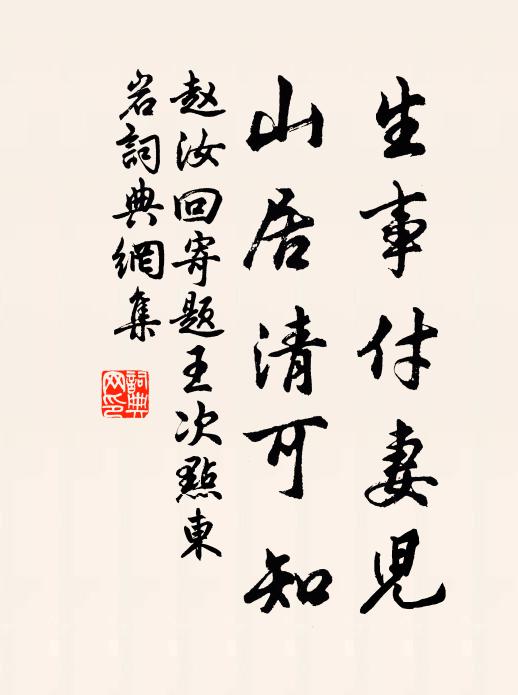 生事付妻兒
山居清可知
赵汝回寄题王次點東
岩詞典網集
詞典
网印